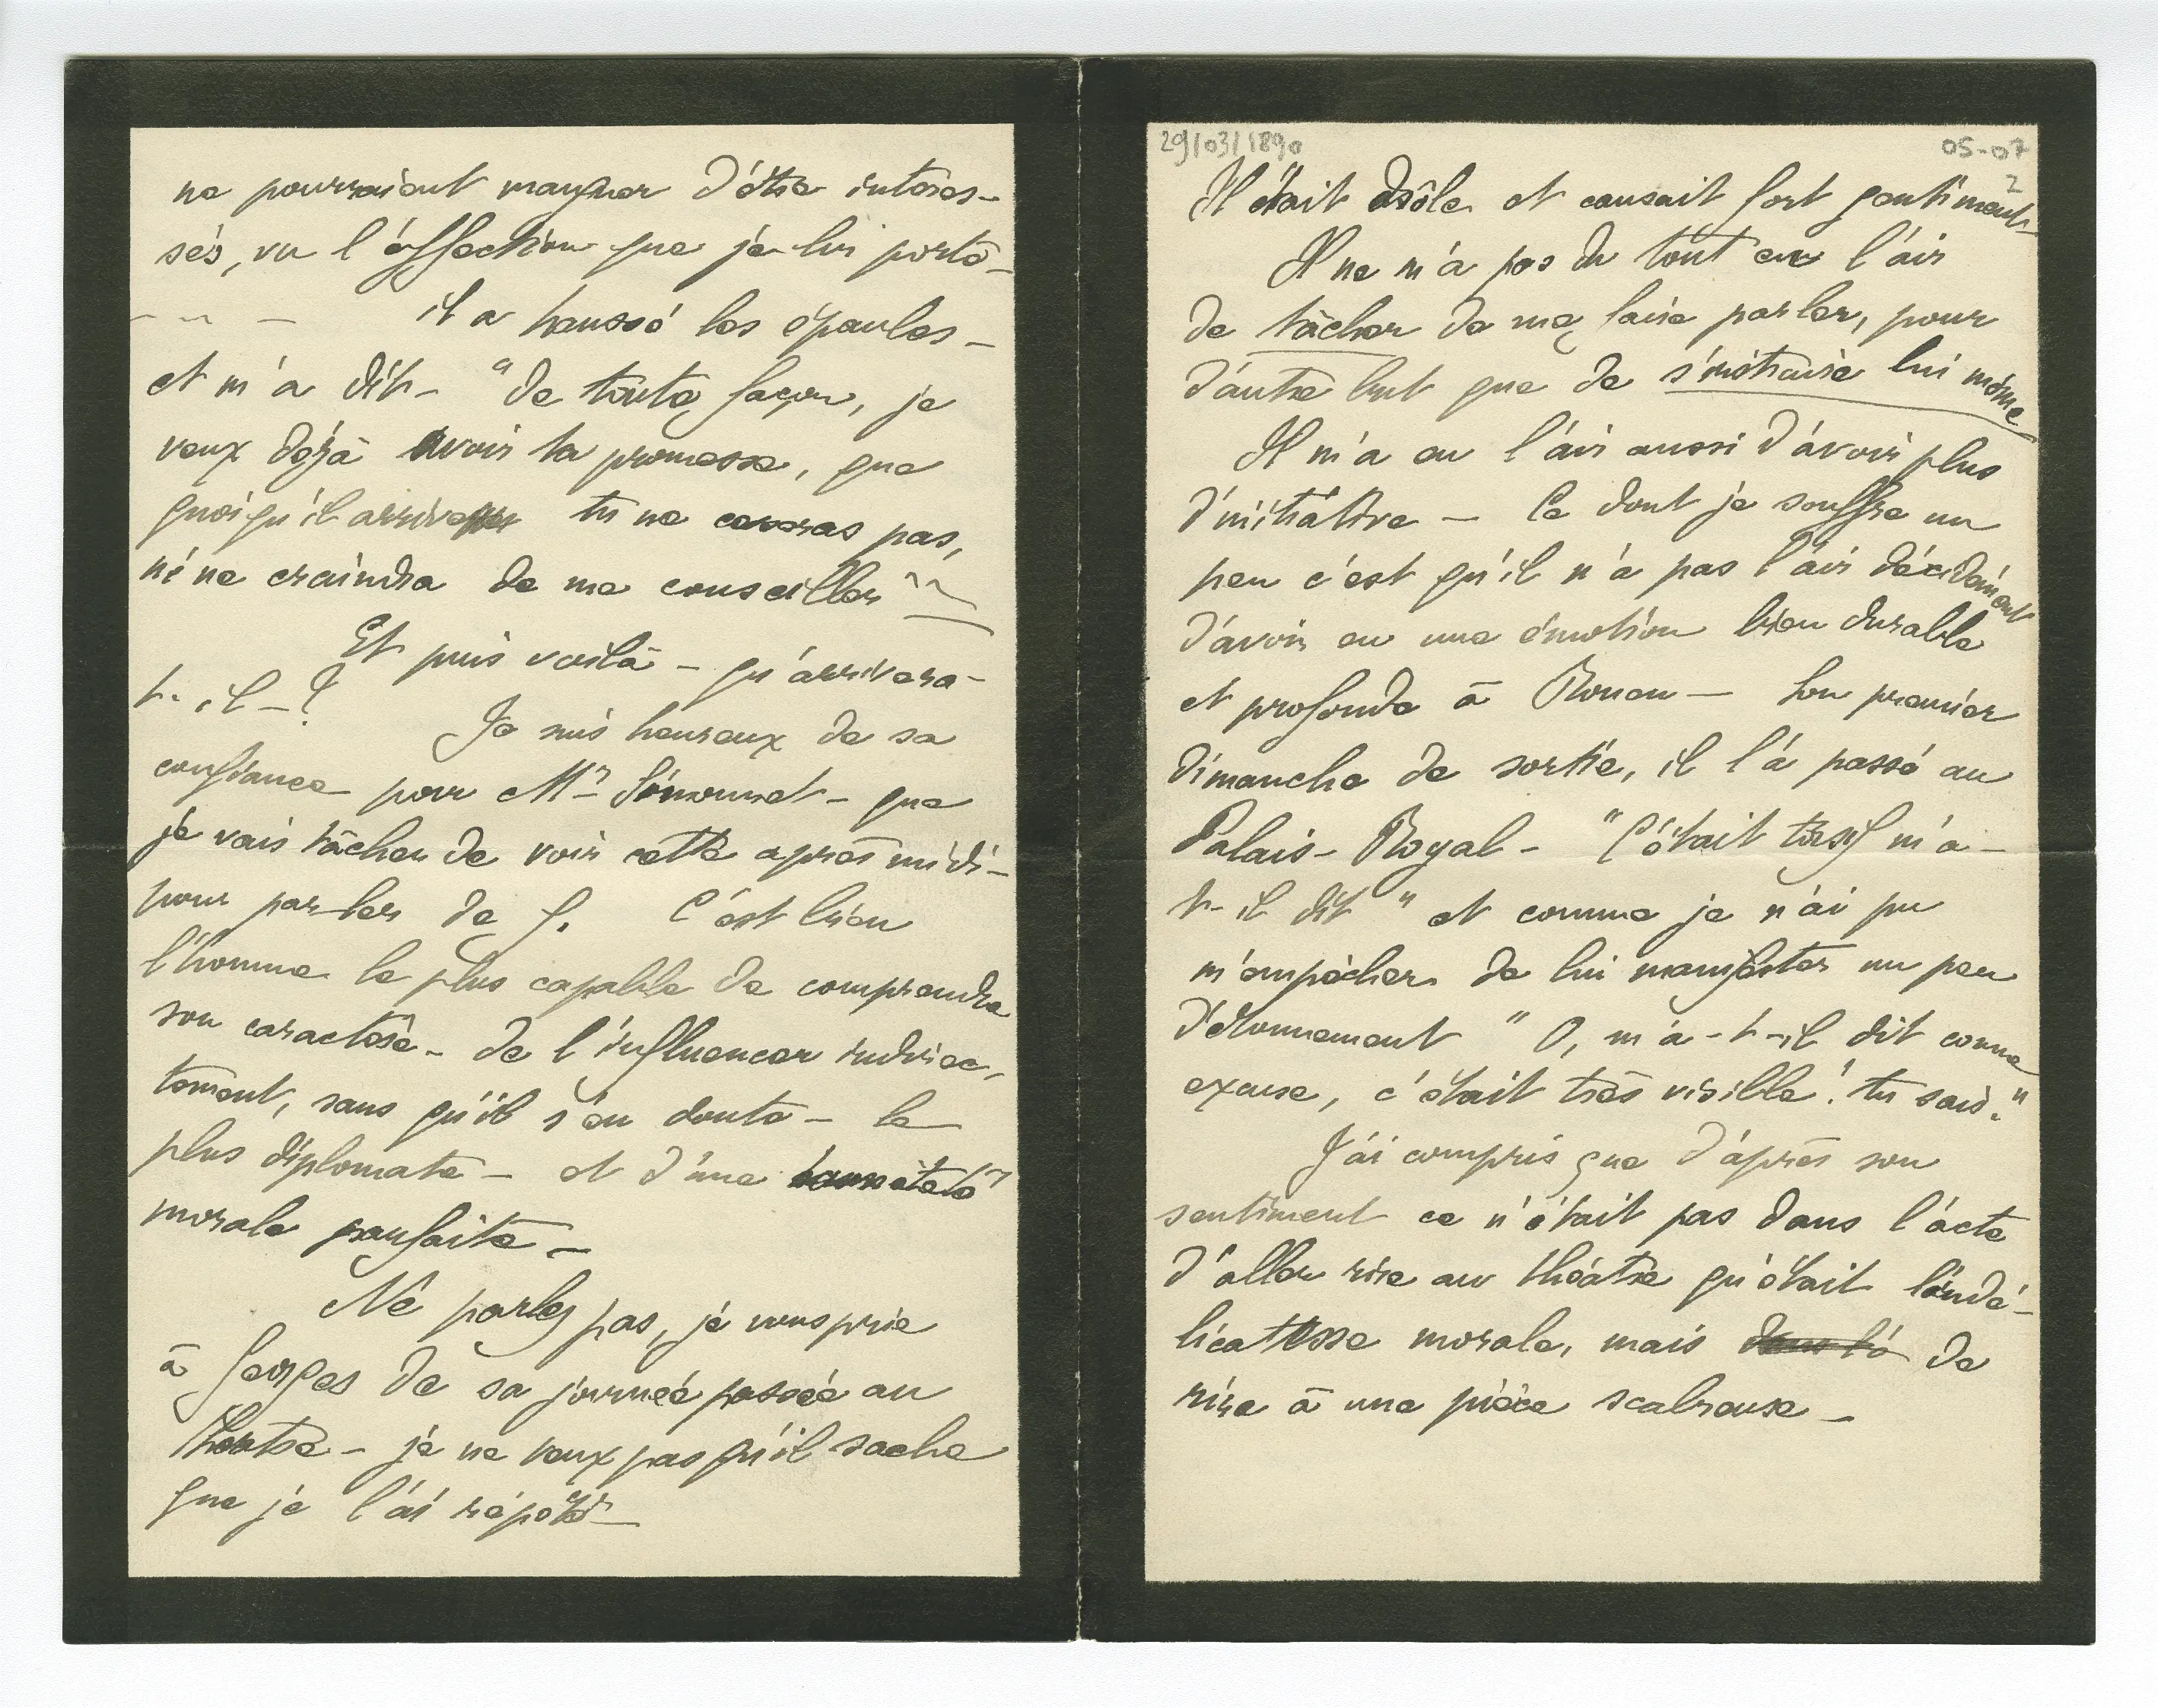 ne pourraient manquer d'être intéres-
sés, vu l'affection que je lui porte -
- - - il a haussé les épaules -
et m'a dit - "de toute façon, je
veux déjà avoir ta promesse, que
quoiqu'il arrive tu ne cesseras pas,
ni ne craindra de me conseiller"
Et puis voilà - qu'arrivera-
t-il - ?
Je suis heureux de sa
confiance pour Mr Simonnet - que
je vais tâcher de voir cette après midi -
pour parler de G. C'est bien
l'homme le plus capable de comprendre
son caractère - de l'influencer indirec-
tement, sans qu'il s'en doute - le
plus diplomate - et d'une honnêteté
morale parfaite -
Ne parlez pas, je vous prie
à Georges de sa journée passée au
théatre - je ne veux pas qu'il sache
que je l'ai répété -
29/03/1890
05-07
2
Il était drôle et causait fort gentiment -
Il ne m'a pas du tout eu l'air
de tâcher de me faire parler, pour
d'autre but que de s'instruire lui même
Il m'a eu l'air aussi d'avoir plus
d'initiative - Ce dont je souffre un
peu c'est qu'il n'a pas l'air décidément
d'avoir eu une émotion bien durable
et profonde à Rouen - Son premier
dimanche de sortie, il l'a passé au
Palais-Royal - "C'était tarsif m'a-
t-il dit" et comme je n'ai pu
m'empêcher de lui manifester un peu
d'étonnement "O, m'a-t-il dit comme
excuse, c'était très risible! tu sais."
J'ai compris que d'après son
sentiment ce n'était pas dans l'acte
d'aller rire au théâtre qu'était l'indé-
licatesse morale, mais de
rire à une pièce scabreuse -